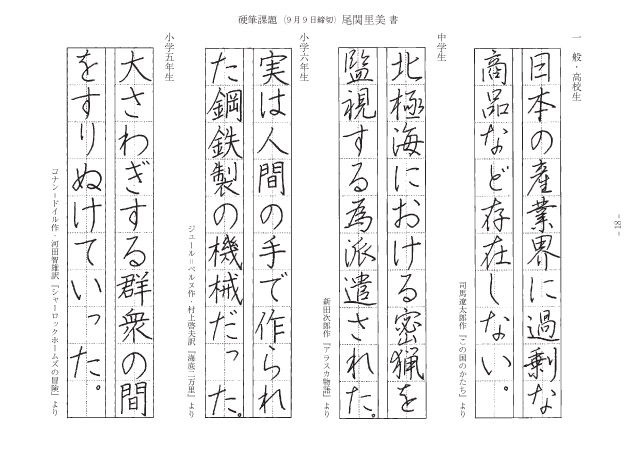 硬筆課題（９月９日締切）尾関里美 書
一般・高校生
日本の産業界に過剰な
商品など存在しない。
司馬遼太郎作『この国のかたち』より
中学生
北極海における密猟を
監視する為派遣された。
新田次郎作『アラスカ物語』より
小学六年生
実は人間の手で作られ
た鋼鉄製の機械だった。
ジュール＝ベルヌ作・村上啓夫訳『海底二万里』より
小学五年生
大さわぎする群衆の間
をすりぬけていった。
コナン＝ドイル作・河田智雄訳『シャーロックホームズの冒険』より